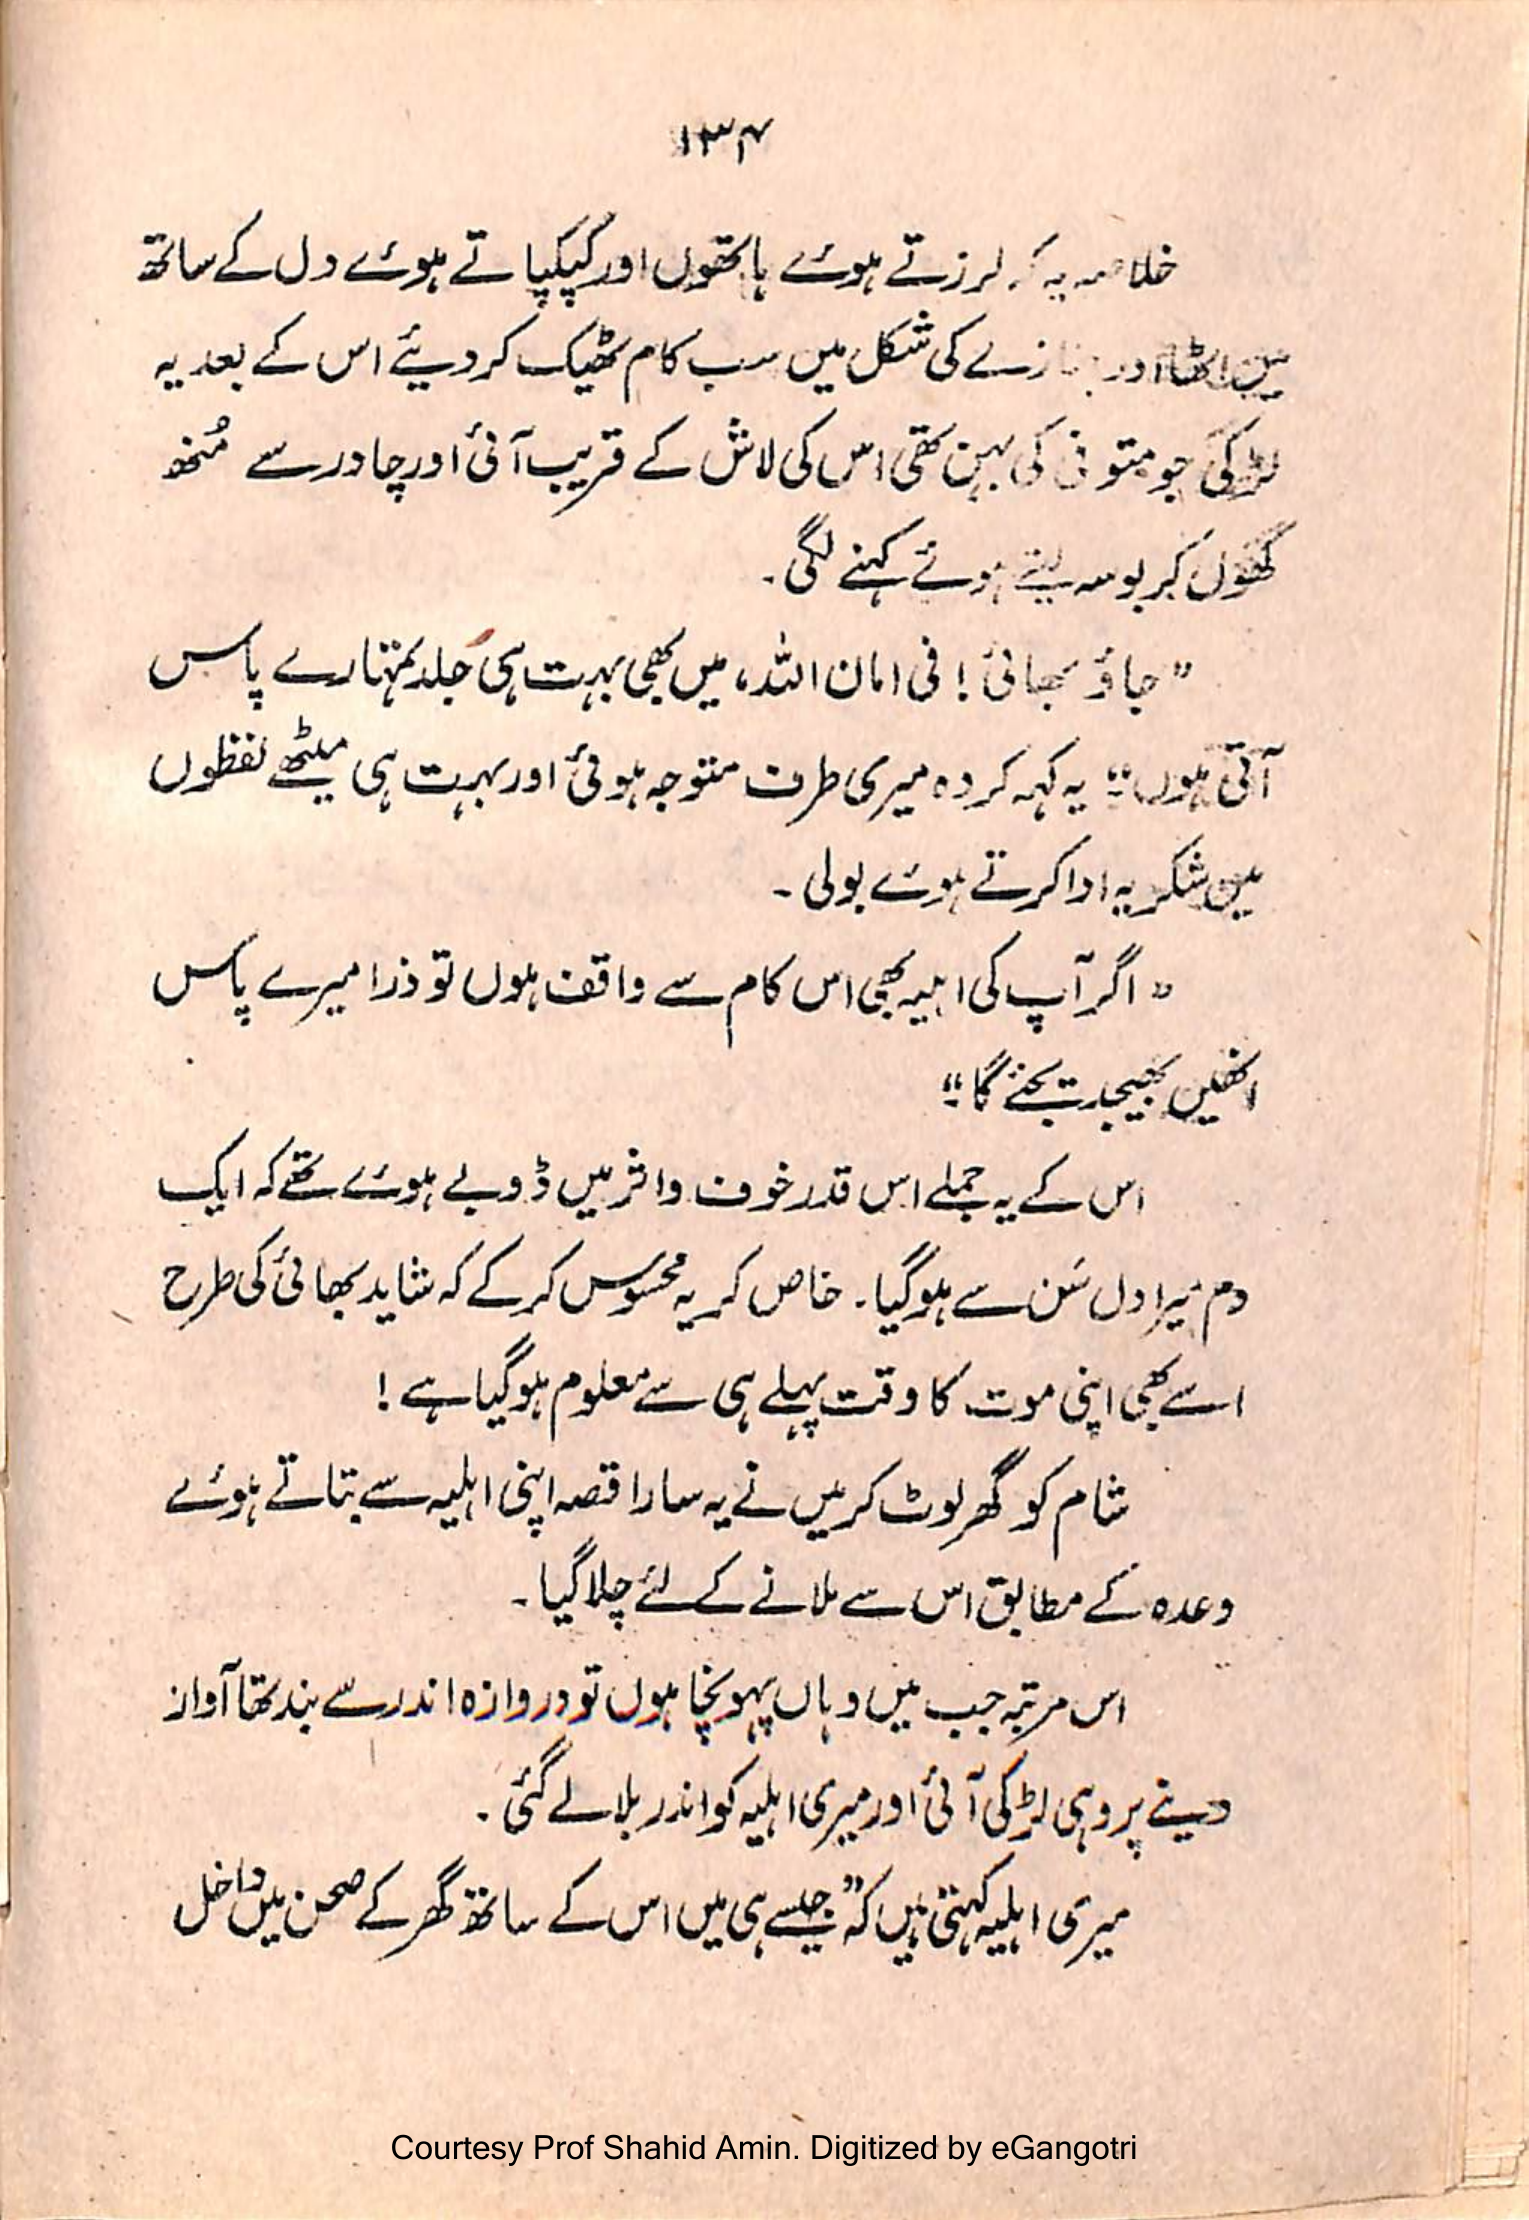 ۱۳۴
خلاصہ یہ کہ لرزتے ہوئے ہاتھوں اور کپکپاتے ہوئے دل کے ساتھ
میں اٹھا اور جنازے کی شکل میں سب کام ٹھیک کر دیئے اس کے بعد یہ
لڑکی جو متوفی کی بہن تھی اس کی لاش کے قریب آئی اور چادر سے مُنھ
کھول کر بوسہ لیتے ہوئے کہنے لگی۔
"جاؤ بھائی! فی امان اللہ، میں بھی بہت ہی جلد تمہارے پاس
آتی ہوں" یہ کہہ کر وہ میری طرف متوجہ ہوئی اور بہت ہی میٹھے لفظوں
میں شکریہ ادا کرتے ہوئے بولی۔
"اگر آپ کی اہلیہ بھی اس کام سے واقف ہوں تو ذرا میرے پاس
انھیں بھیجدیجئے گا"
اس کے یہ جملے اس قدر خوف و اثر میں ڈوبے ہوئے تھے کہ ایک
دم میرا دل سَن سے ہو گیا۔ خاص کر یہ محسوس کر کے کہ شاید بھائی کی طرح
اسے بھی اپنی موت کا وقت پہلے ہی سے معلوم ہو گیا ہے!
شام کو گھر لوٹ کر میں نے یہ سارا قصہ اپنی اہلیہ سے بتاتے ہوئے
وعدہ کے مطابق اس سے ملانے کے لئے چلا گیا۔
اس مرتبہ جب میں وہاں پہونچا ہوں تو دروازہ اندر سے بند تھا آواز
دینے پر وہی لڑکی آئی اور میری اہلیہ کو اندر بلا لے گئی۔
میری اہلیہ کہتی ہیں کہ "جیسے ہی میں اس کے ساتھ گھر کے صحن میں داخل
Courtesy Prof Shahid Amin. Digitized by eGangotri